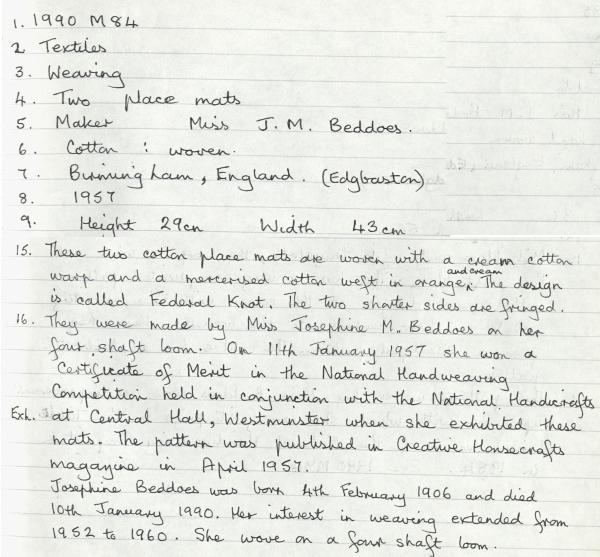 1. 1990 M84
2 Textiles
3. Weaving
4. Two place mats
5. Maker Miss J. M. Beddoes.
6. Cotton : woven.
7. Birmingham, England. (Edgbaston)
8. 1957
9. Height 29cm Width 43cm
15. These two cotton place mats are woven with a cream cotton
warp and a mercerised cotton weft in orange and cream. The design
is called Federal Knot. The two shorter sides are fringed.
16. They were made by Miss Josephine M. Beddoes on her
four shaft loom. On 11th January 1957 she won a
Certificate of Merit in the National Handweaving
Competition held in conjunction with the National Handicrafts
Exh. at Central Hall, Westminster when she exhibited these
mats. The pattern was published in Creative Housecrafts
magazine in April 1957.
Josephine Beddoes was born 4th February 1906 and died
10th January 1990. Her interest in weaving extended from
1952 to 1960. She wove on a four shaft loom.